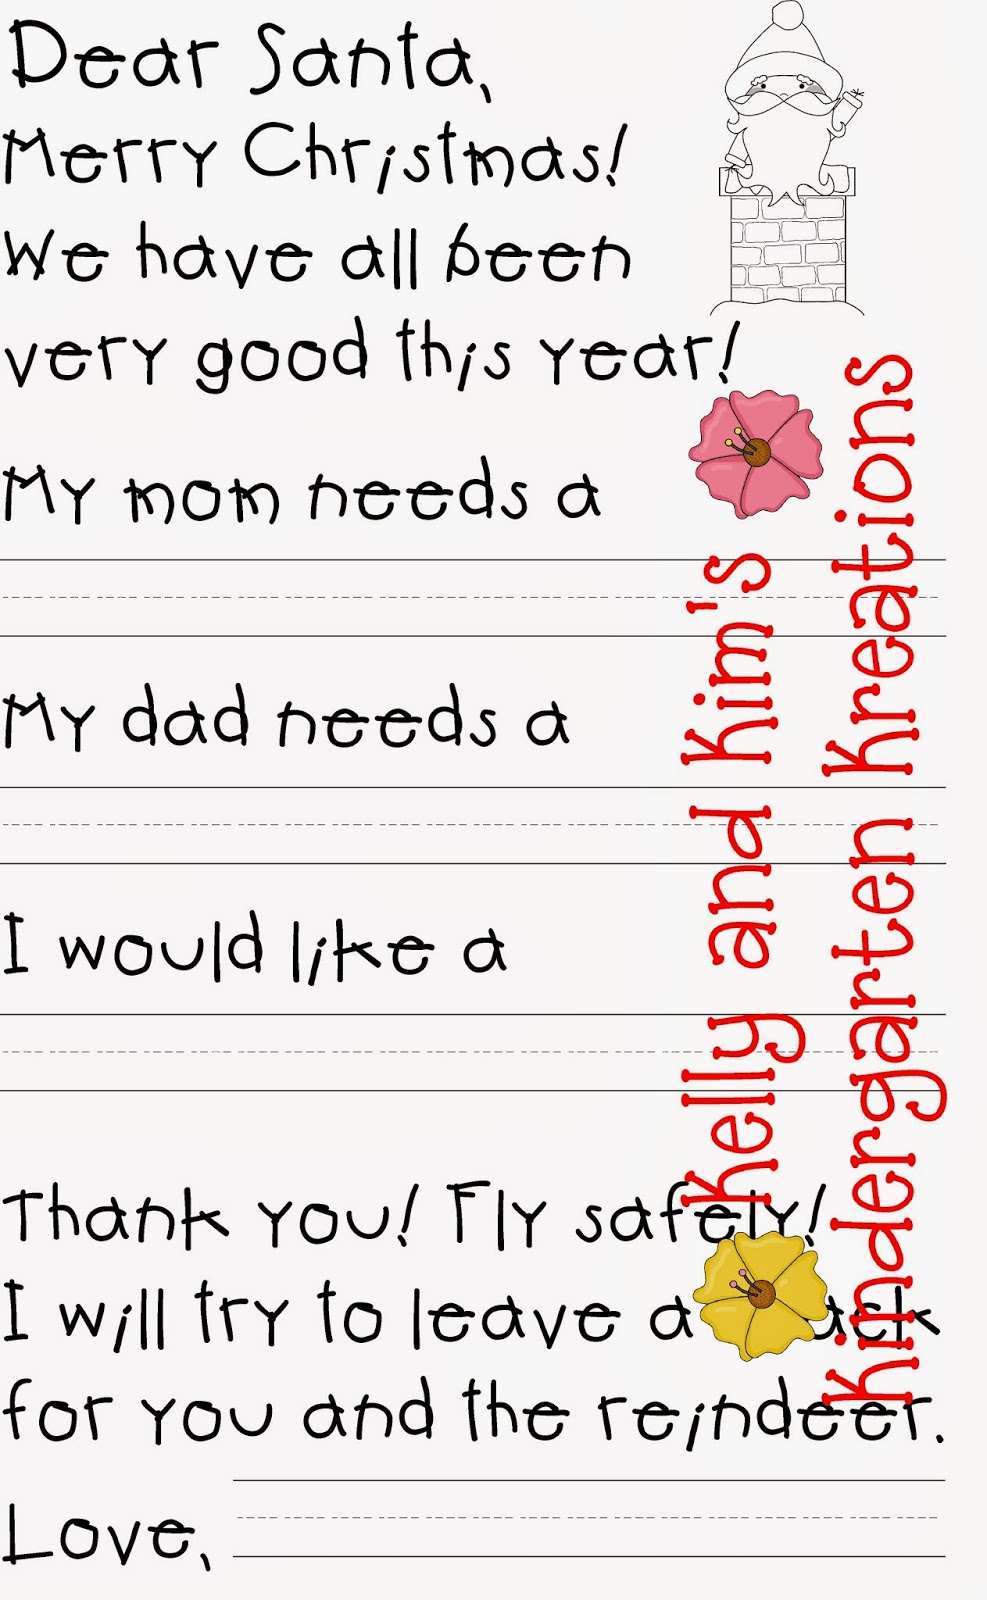 Dear Santa,
Merry Christmas!
We have all been
very good this year!
My mom needs a
My dad needs a
I would like a
Thank you! Fly safely!
I will try to leave a
for you and the reindeer.
Love,
Kelly and Kim's
Kindergarten Kreations